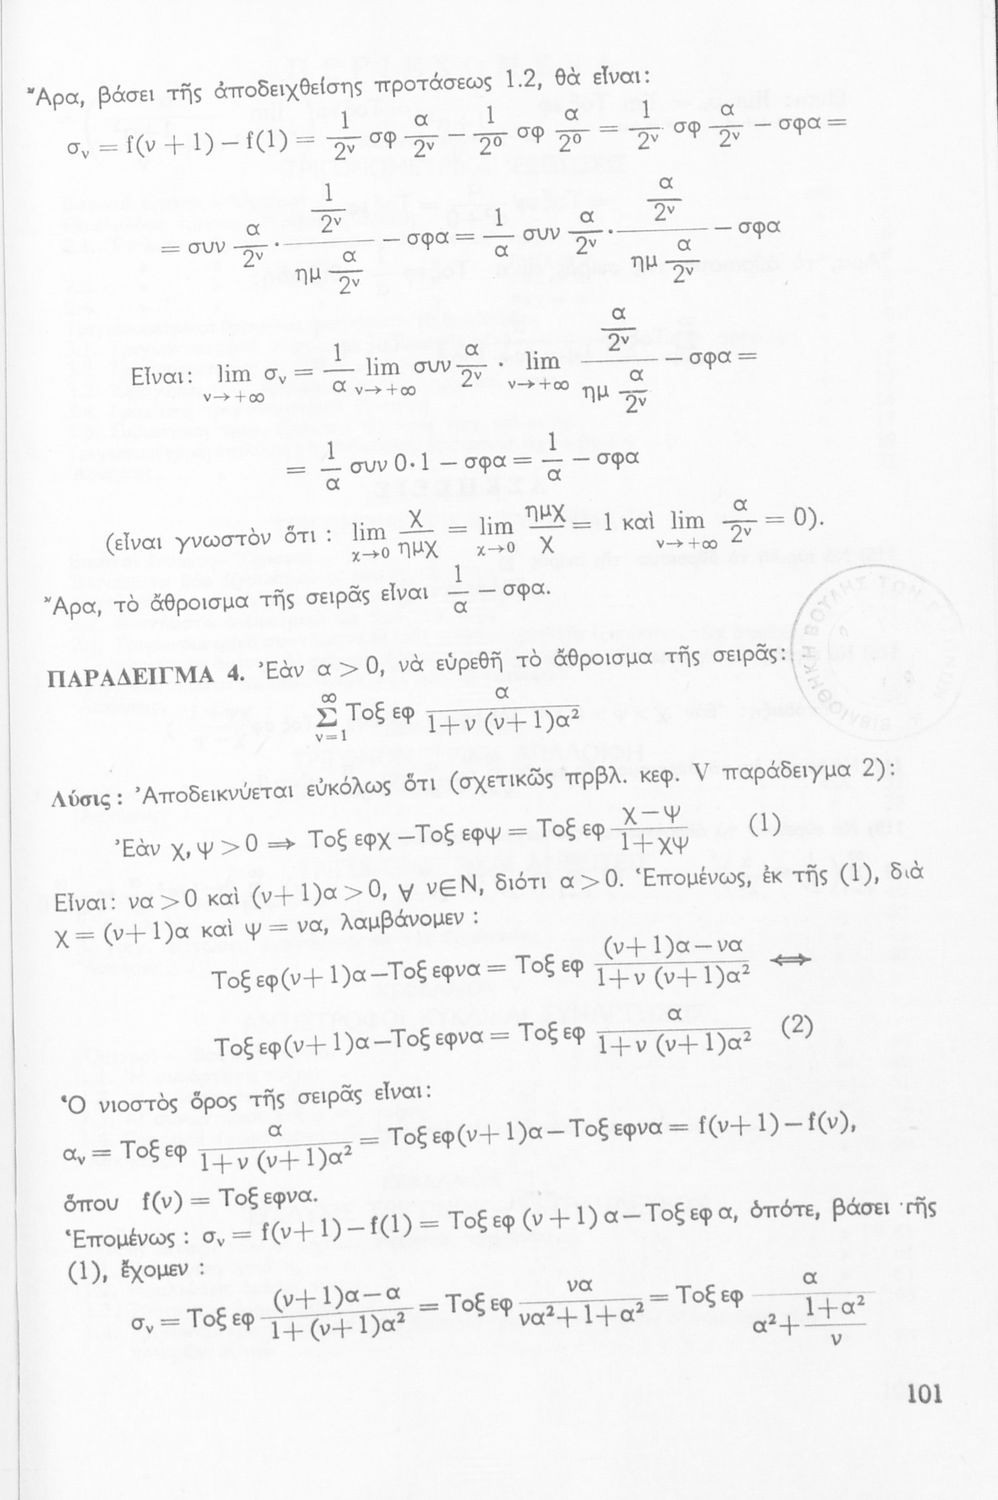 Ἄρα, βάσει τῆς ἀποδειχθείσης προτάσεως 1.2, θὰ εἶναι:
σ_ν = f(ν + 1) − f(1) = 1/2^ν σφ α/2^ν − 1/2^0 σφ α/2^0 = 1/2^ν σφ α/2^ν − σφα =
= συν α/2^ν · (1/2^ν)/(ημ α/2^ν) − σφα = 1/α συν α/2^ν · (α/2^ν)/(ημ α/2^ν) − σφα
Εἶναι: lim_{ν→+∞} σ_ν = 1/α lim_{ν→+∞} συν α/2^ν · lim_{ν→+∞} (α/2^ν)/(ημ α/2^ν) − σφα =
= 1/α συν 0·1 − σφα = 1/α − σφα
(εἶναι γνωστὸν ὅτι : lim_{χ→0} χ/ημχ = lim_{χ→0} ημχ/χ = 1 καὶ lim_{ν→+∞} α/2^ν = 0).
Ἄρα, τὸ ἄθροισμα τῆς σειρᾶς εἶναι 1/α − σφα.
ΠΑΡΑΔΕΙΓΜΑ 4. Ἐὰν α > 0, νὰ εὑρεθῆ τὸ ἄθροισμα τῆς σειρᾶς:
Σ_{ν=1}^{∞} Τοξ εφ α/(1+ν (ν+1)α²)
Λύσις : Ἀποδεικνύεται εὐκόλως ὅτι (σχετικῶς πρβλ. κεφ. V παράδειγμα 2):
Ἐὰν χ, ψ > 0 ⇒ Τοξ εφχ −Τοξ εφψ = Τοξ εφ (χ−ψ)/(1+χψ) (1)
Εἶναι: να > 0 καὶ (ν+1)α > 0, ∀ ν∈Ν, διότι α > 0. Ἑπομένως, ἐκ τῆς (1), διὰ
χ = (ν+1)α καὶ ψ = να, λαμβάνομεν :
Τοξ εφ(ν+1)α−Τοξ εφνα = Τοξ εφ ((ν+1)α−να)/(1+ν (ν+1)α²) ⇔
Τοξ εφ(ν+1)α−Τοξ εφνα = Τοξ εφ α/(1+ν (ν+1)α²) (2)
Ὁ νιοστὸς ὅρος τῆς σειρᾶς εἶναι:
α_ν = Τοξ εφ α/(1+ν (ν+1)α²) = Τοξ εφ(ν+1)α−Τοξ εφνα = f(ν+1)−f(ν),
ὅπου f(ν) = Τοξ εφνα.
Ἑπομένως : σ_ν = f(ν+1)−f(1) = Τοξ εφ (ν+1) α−Τοξ εφ α, ὁπότε, βάσει τῆς
(1), ἔχομεν :
σ_ν = Τοξ εφ ((ν+1)α−α)/(1+(ν+1)α²) = Τοξ εφ να/(να²+1+α²) = Τοξ εφ α/(α²+(1+α²)/ν)
101